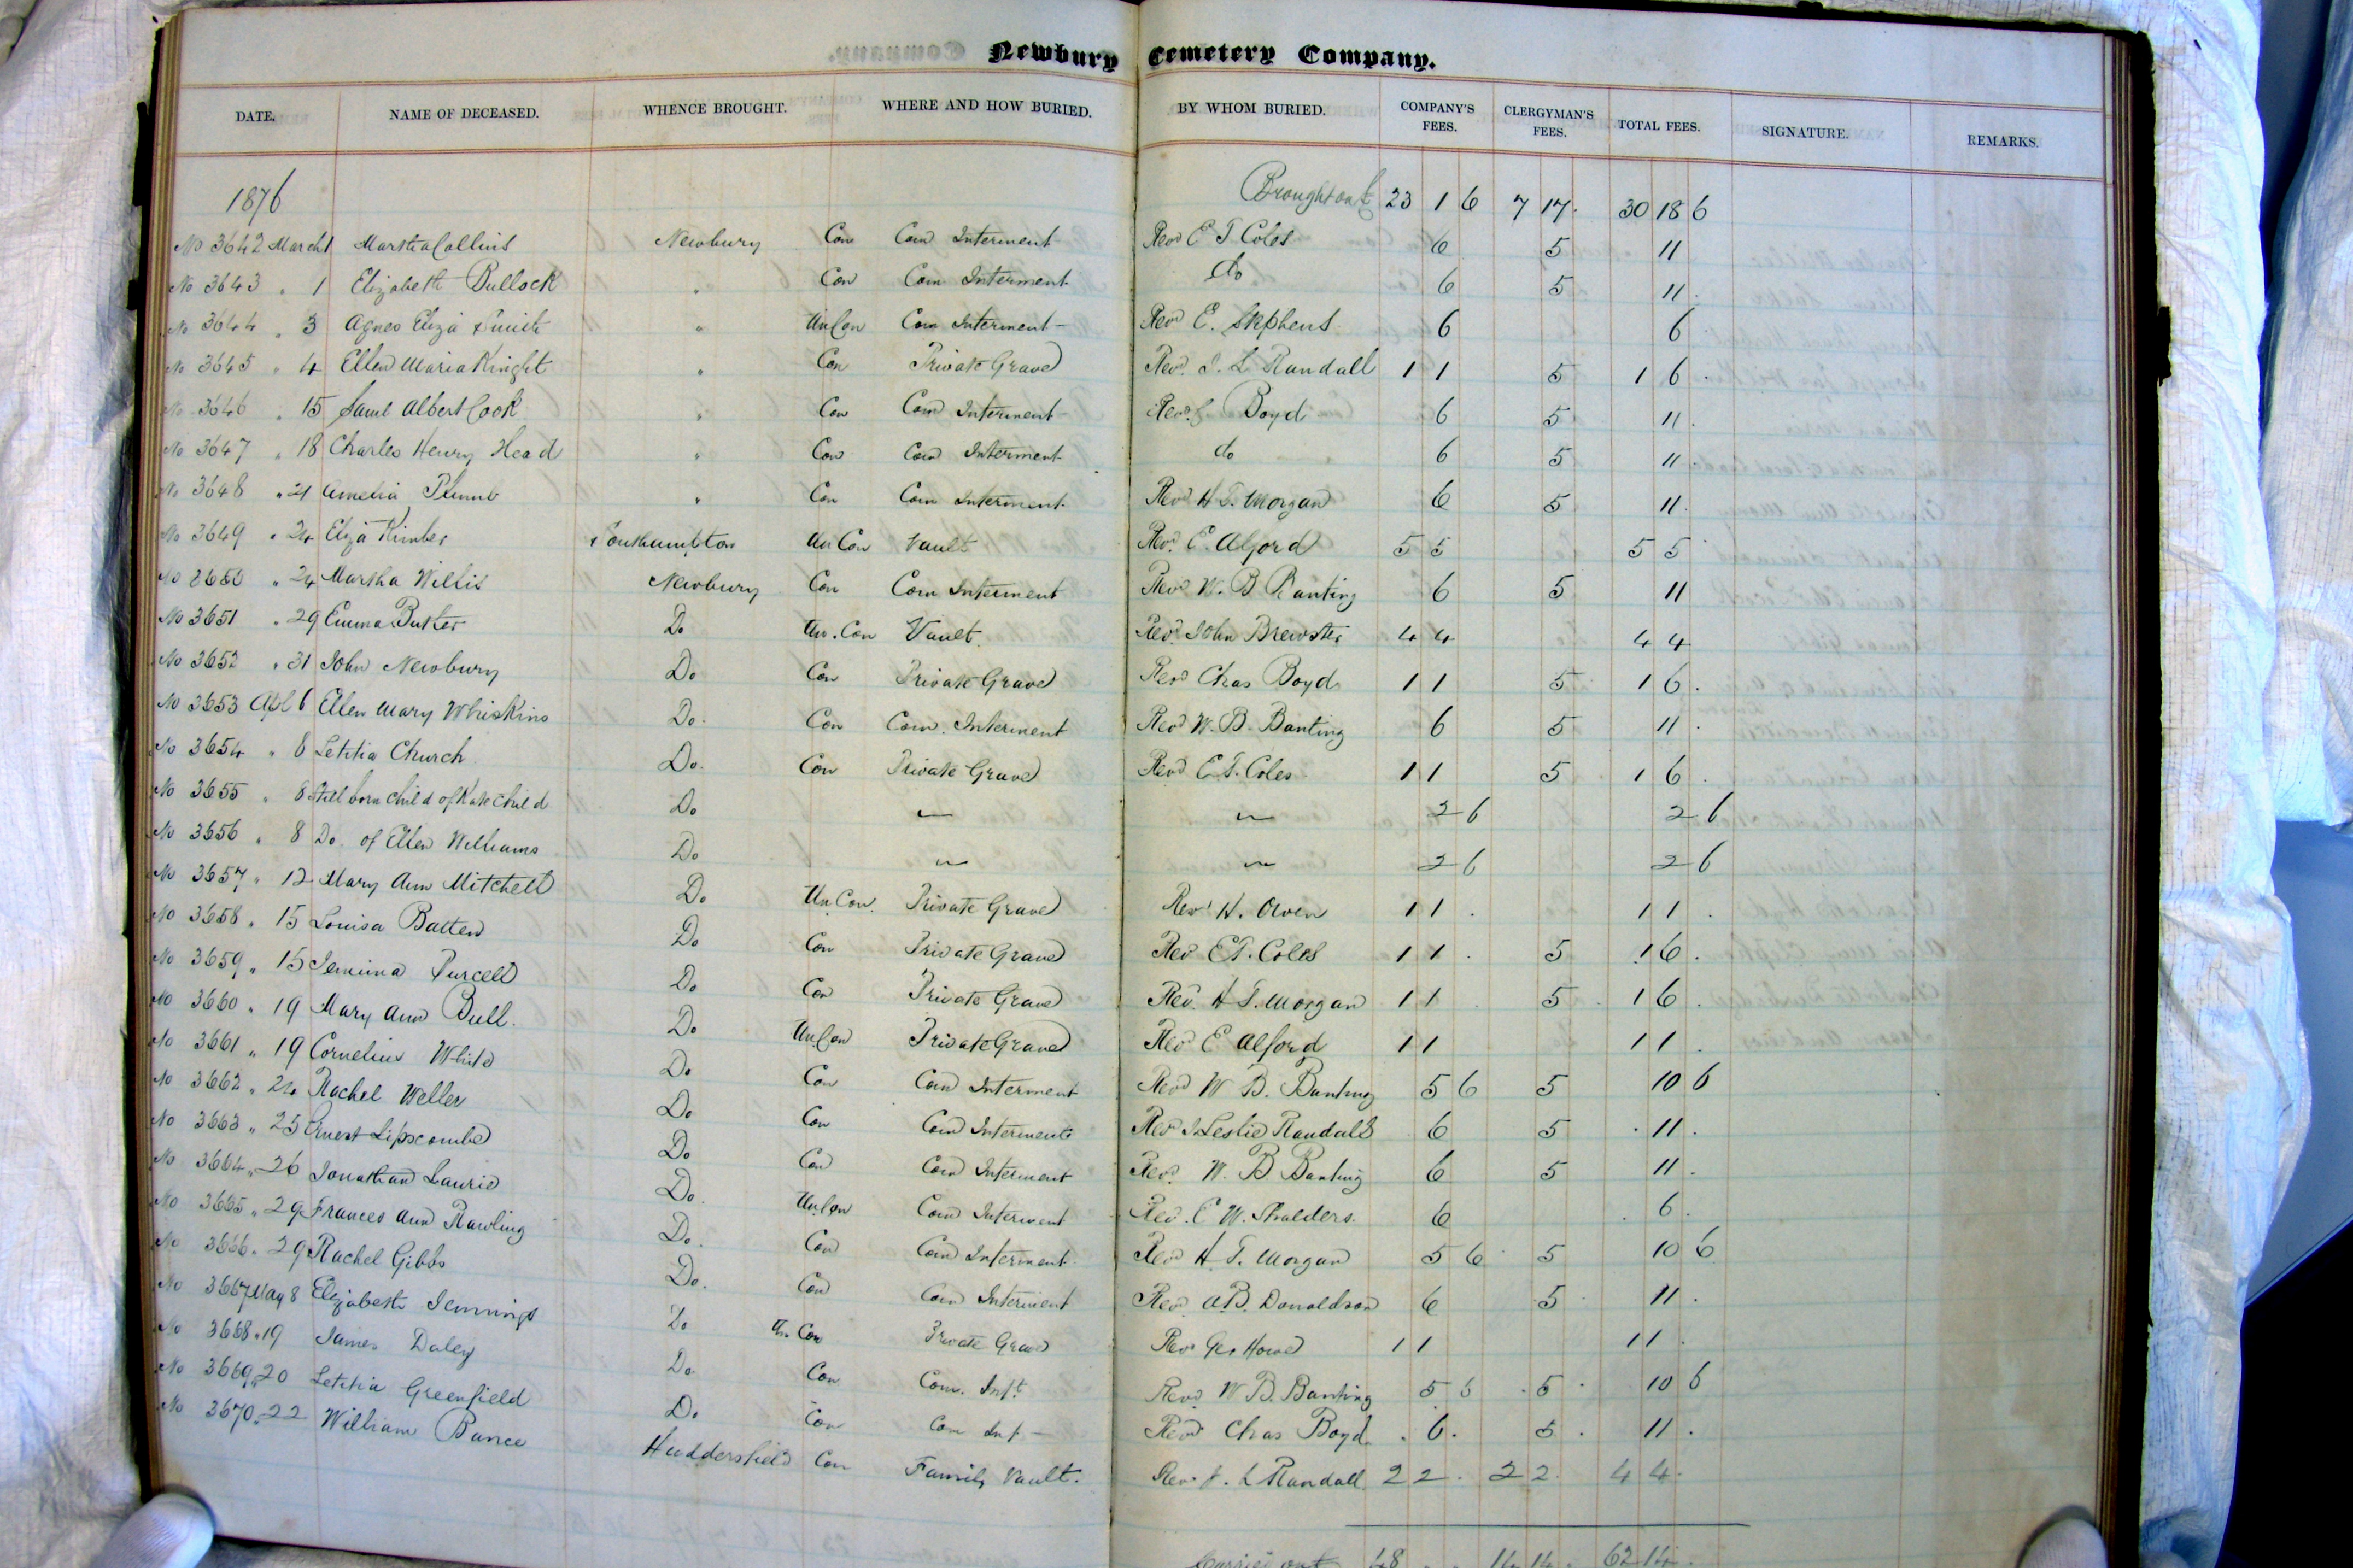 Newbury Cemetery Company.
DATE. NAME OF DECEASED. WHENCE BROUGHT. WHERE AND HOW BURIED. BY WHOM BURIED. COMPANY'S FEES. CLERGYMAN'S FEES. TOTAL FEES. SIGNATURE. REMARKS.
1876 Brought out 23 1 6 7 17 . 30 18 6
No 3642 March 1 Martha Collins Newbury Con Com Interment Revd E T Coles 6 5 11
No 3643 " 1 Elizabeth Bullock " Con Com Interment do 6 5 11 .
No 3644 " 3 Agnes Eliza Smith " Un Con Com Interment Revd E. Stephens 6 6 .
No 3645 " 4 Ellen Maria Knight " Con Private Grave Revd. J. L Randall 1 1 5 1 6 .
No 3646 " 15 Saml Albert Cook " Con Com Interment Revd. C Boyd 6 5 11 .
No 3647 " 18 Charles Henry Head " Con Com Interment do 6 5 11 .
No 3648 " 21 Amelia Plumb " Con Com Interment Revd H T. Morgan 6 5 11 .
No 3649 " 24 Eliza Kimber Southampton Un Con Vault Revd. E. Alford 5 5 5 5
No 3650 " 24 Martha Willis Newbury Con Com Interment Revd W. B Banting 6 5 11
No 3651 " 29 Emma Butler Do Un. Con Vault Revd John Brewster 4 4 4 4
No 3652 " 31 John Newbury Do Con Private Grave Revd Chas Boyd 1 1 5 1 6 .
No 3653 Apl 6 Ellen Mary Whiskins Do. Con Com. Interment Revd W. B. Banting 6 5 11 .
No 3654 " 8 Letitia Church Do. Con Private Grave Revd E T. Coles 1 1 5 1 6 .
No 3655 " 8 Still born child of Kate Child Do " " 2 6 2 6
No 3656 " 8 Do. of Ellen Williams Do " " 2 6 2 6
No 3657 " 12 Mary Ann Mitchell Do Un. Con. Private Grave Revd H. Owen 1 1 . 1 1 .
No 3658 " 15 Louisa Batten Do Con Private Grave Rev E T. Coles 1 1 . 5 1 6 .
No 3659 " 15 Jemima Purcell Do Con Private Grave Rev. H T. Morgan 1 1 5 . 1 6 .
No 3660 " 19 Mary Ann Bull. Do Un Con Private Grave Rev E Alford 1 1 1 1 .
No 3661 " 19 Cornelius White Do Con Com Interment Revd W B. Banting 5 6 5 10 6
No 3662 " 24 Rachel Weller Do Con Com Interment Rev J. Leslie Randall 6 5 11 .
No 3663 " 25 Ernest Lipscombe Do Con Com Interment Revd. W. B Banting 6 5 11 .
No 3664 " 26 Jonathan Laurie Do. Un Con Com Interment Rev. C W. Shalders 6 6 .
No 3665 " 29 Frances Ann Rawling Do. Con Com Interment Rev H T. Morgan 5 6 5 10 6
No 3666 " 29 Rachel Gibbs Do. Con Com Interment Rev. A.B. Donaldson 6 5 11 .
No 3667 May 8 Elizabeth Jennings Do Un Con Private Grave Rev Geo Howe 1 1 1 1 .
No 3668 " 19 James Daley Do. Con Com. Intt Revd W B. Banting 5 6 5 10 6
No 3669 " 20 Letitia Greenfield Do Con Com Int Revd Chas Boyd . 6 . 5 . 11 .
No 3670 " 22 William Bance Huddersfield Con Family Vault. Rev. J. L Randall 2 2 . 2 2 . 4 4 .
Carried out 48 14 14 . 62 14 .